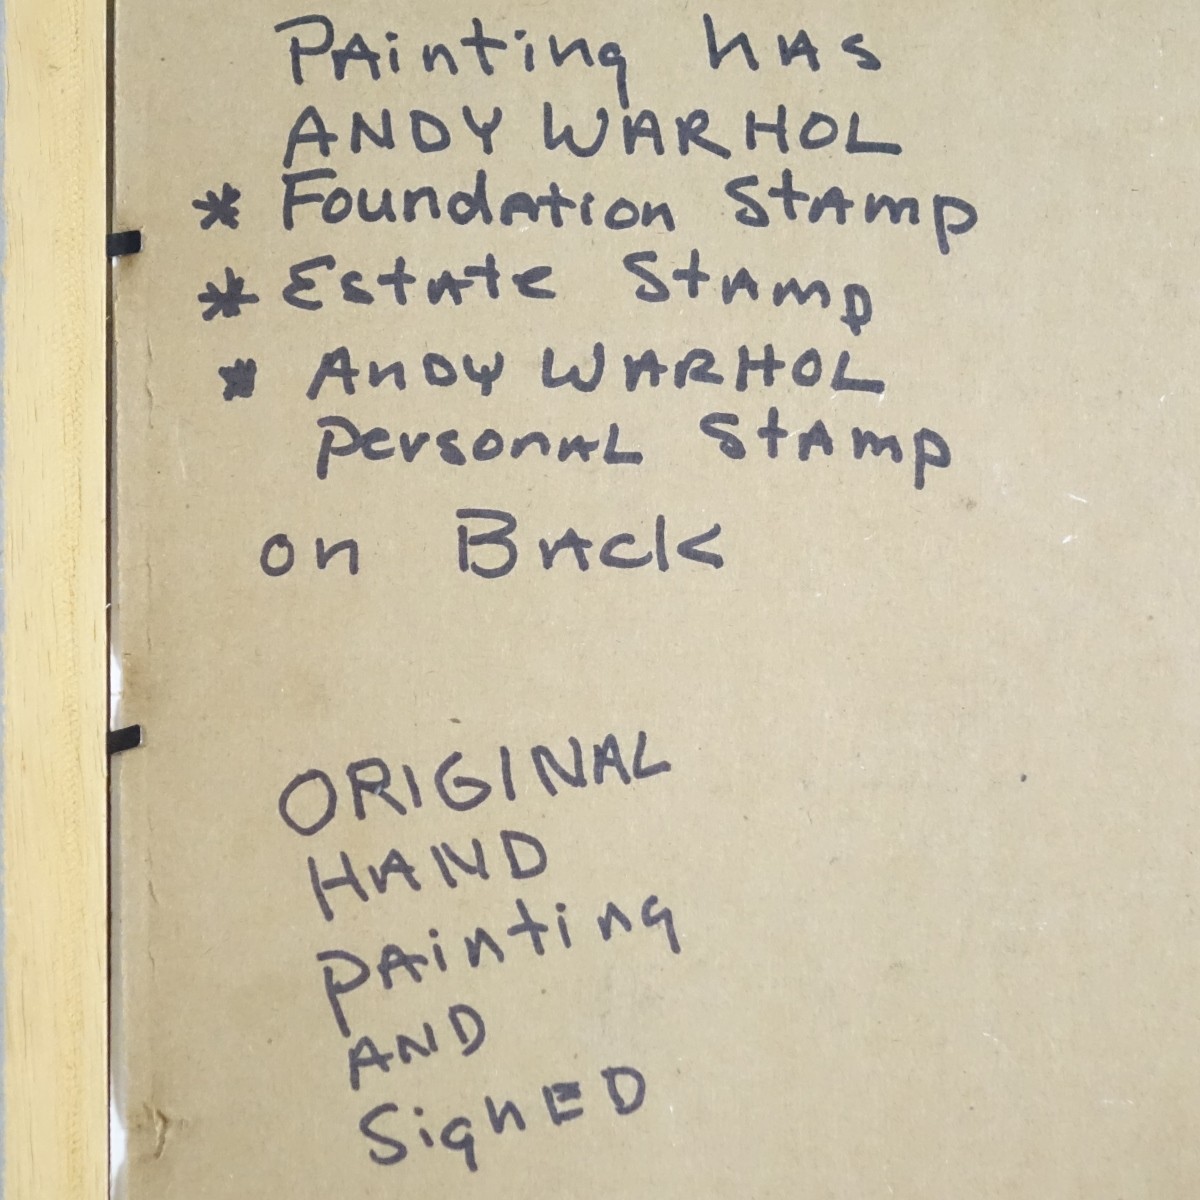 PAinting hAs
ANDY WARHOL
* FoundAtion StAmp
* EstAte StAmp
* AnDY WARHOL
personAL StAmp
on BAck
ORIGINAL
HAND
pAinting
AND
SignED